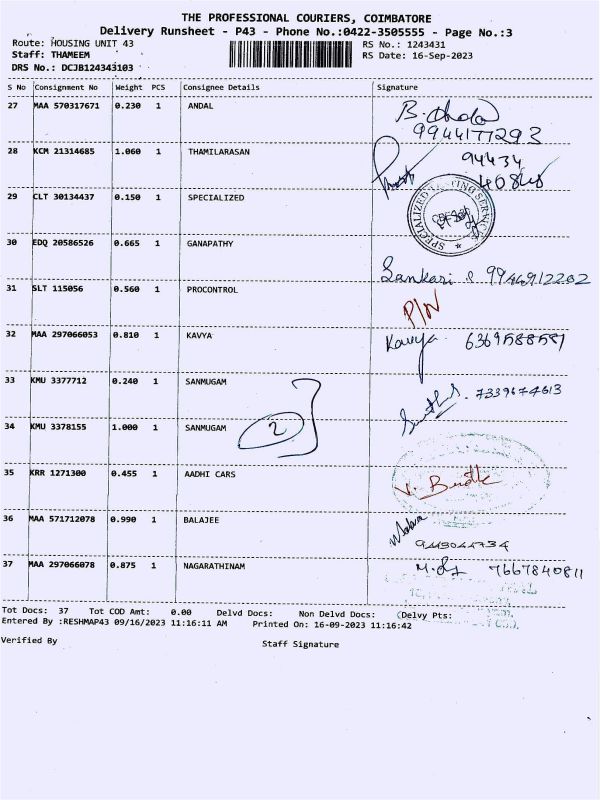 THE PROFESSIONAL COURIERS, COIMBATORE
Delivery Runsheet - P43 - Phone No.:0422-3505555 - Page No.:3
Route: HOUSING UNIT 43 RS No.: 1243431
Staff: THAMEEM RS Date: 16-Sep-2023
DRS No.: DCJB124343103
S No Consignment No Weight PCS Consignee Details Signature
27 MAA 570317671 0.230 1 ANDAL
9944177293
28 KCM 21314685 1.060 1 THAMILARASAN 94434
40840
29 CLT 30134437 0.150 1 SPECIALIZED
SPECIALIZED TESTING SERVICE
30 EDQ 20586526 0.665 1 GANAPATHY
Sankari S 9944912202
31 SLT 115056 0.560 1 PROCONTROL P/N
32 MAA 297066053 0.810 1 KAVYA Kavya 6369588581
33 KMU 3377712 0.240 1 SANMUGAM 7339674613
34 KMU 3378155 1.000 1 SANMUGAM 2
35 KRR 1271300 0.455 1 AADHI CARS
36 MAA 571712078 0.990 1 BALAJEE
37 MAA 297066078 0.875 1 NAGARATHINAM 7667840811
Tot Docs: 37 Tot COD Amt: 0.00 Delvd Docs: Non Delvd Docs: (Delvy Pts:
Entered By :RESHMAP43 09/16/2023 11:16:11 AM Printed On: 16-09-2023 11:16:42
Verified By Staff Signature